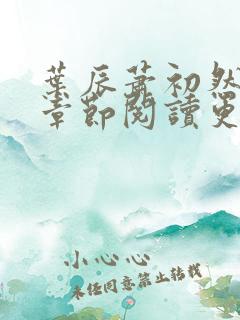 葉辰蕭初然
章節閱讀更
小心心
未經同意禁止轉載